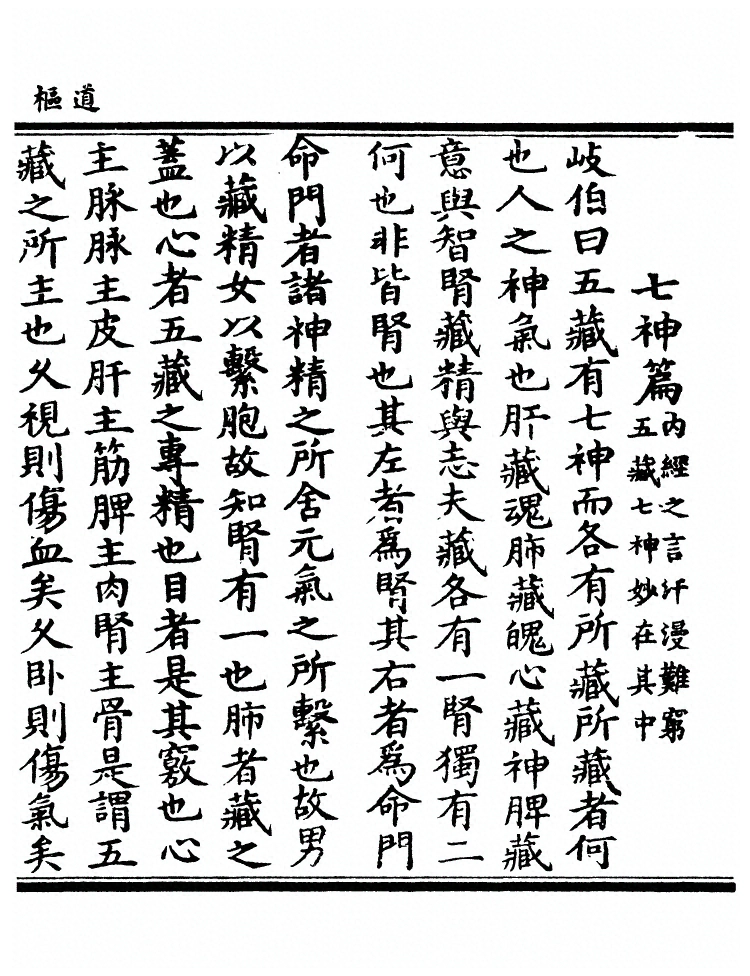 道樞
七神篇
内經之言汗漫難窮
五藏七神妙在其中
岐伯曰五藏有七神而各有所藏所藏者何
也人之神氣也肝藏魂肺藏魄心藏神脾藏
意與智腎藏精與志夫藏各有一腎獨有二
何也非皆腎也其左者為腎其右者為命門
命門者諸神精之所舍元氣之所繫也故男
以藏精女以繫胞故知腎有一也肺者藏之
蓋也心者五藏之專精也目者是其竅也心
主脉脉主皮肝主筋脾主肉腎主骨是謂五
藏之所主也久視則傷血矣久卧則傷氣矣